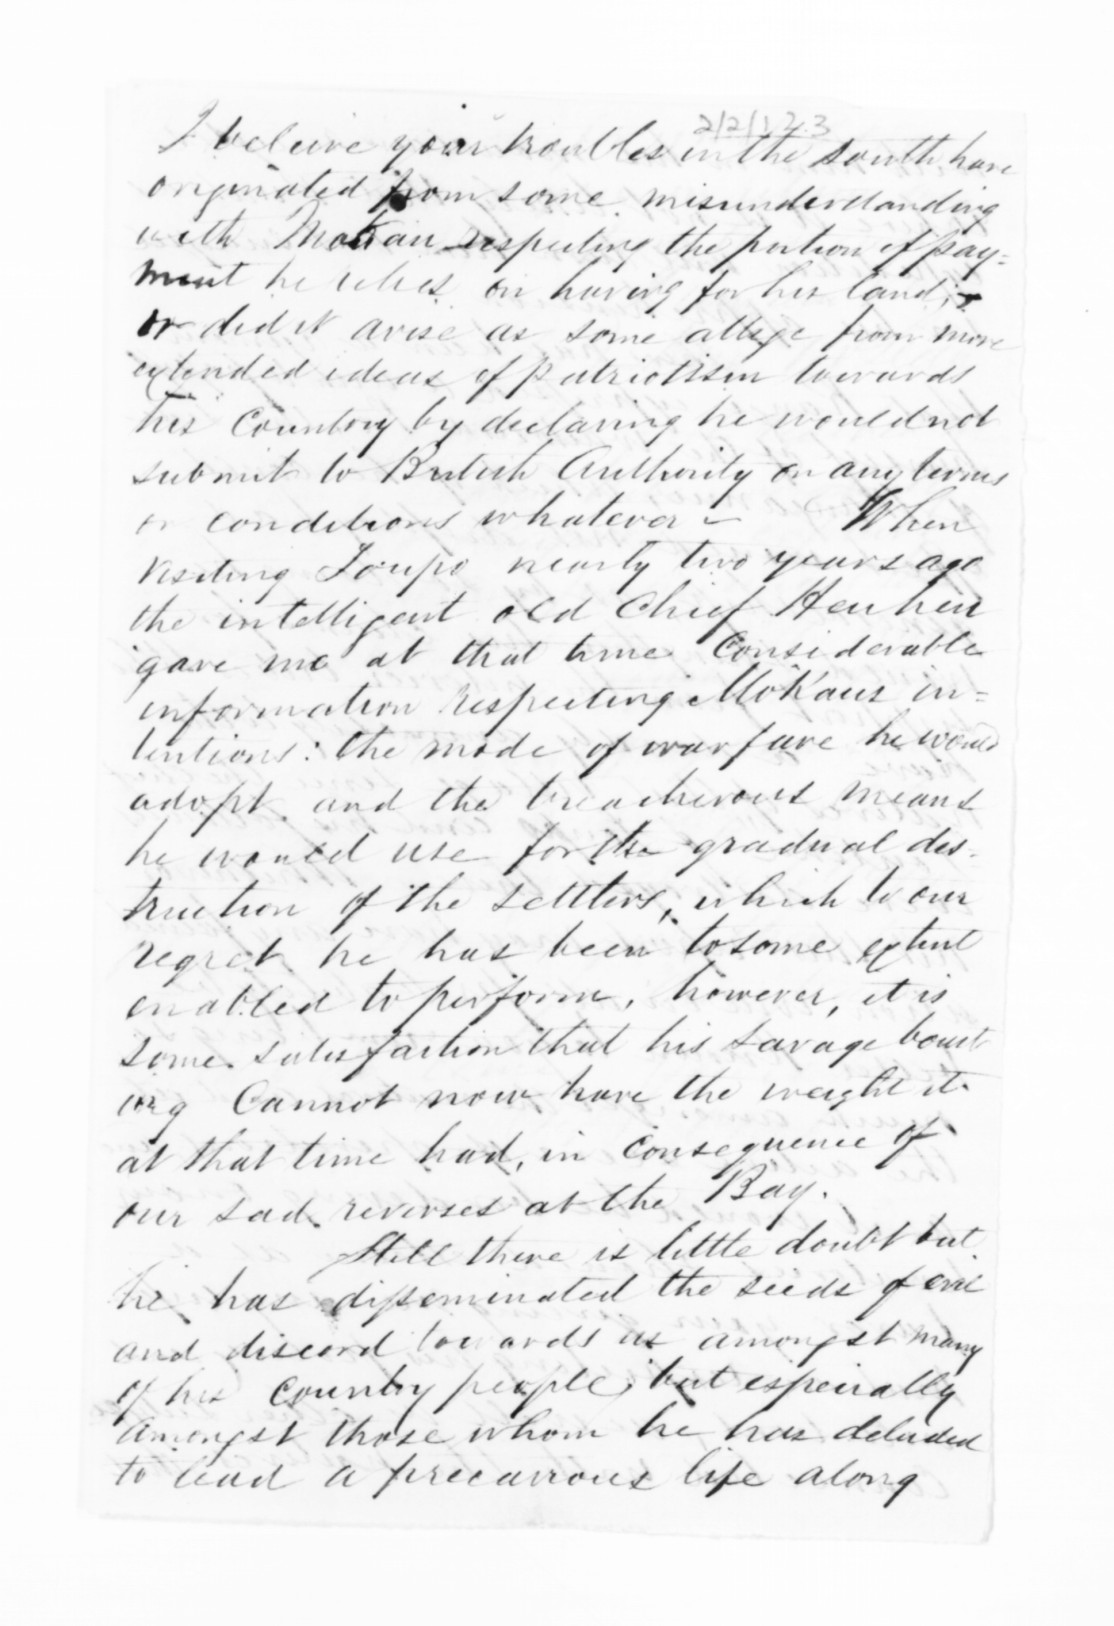 2/2/123
I beleive your troubles in the south have
originated from some misunderstanding
with Mokau respecting the portion of pay=
ment he relies on having for his land,
or did it arise as some allege from more
extended ideas of patriotism towards
his Country by declaring he would not
submit to British Authority on any terms
or conditions whatever - When
visiting Toupo nearly two years ago
the intelligent old Chief Heu heu
gave me at that time Considerable
information respecting MoKaus in=
tentions: the mode of warfare he would
adopt and the treacherous means
he would use for the gradual des-
truction of the settlers, which to our
regret he has been to some extent
enabled to perform, however, it is
some satisfaction that his savage boast
ing Cannot now have the weight it
at that time had, in Consequence of
our sad reverses at the Bay.
Still there is little doubt but
he has disseminated the seeds of evil
and discord towards us amongst many
of his Country people, but especially
amongst those whom he has deluded
to lead a precarrious life along